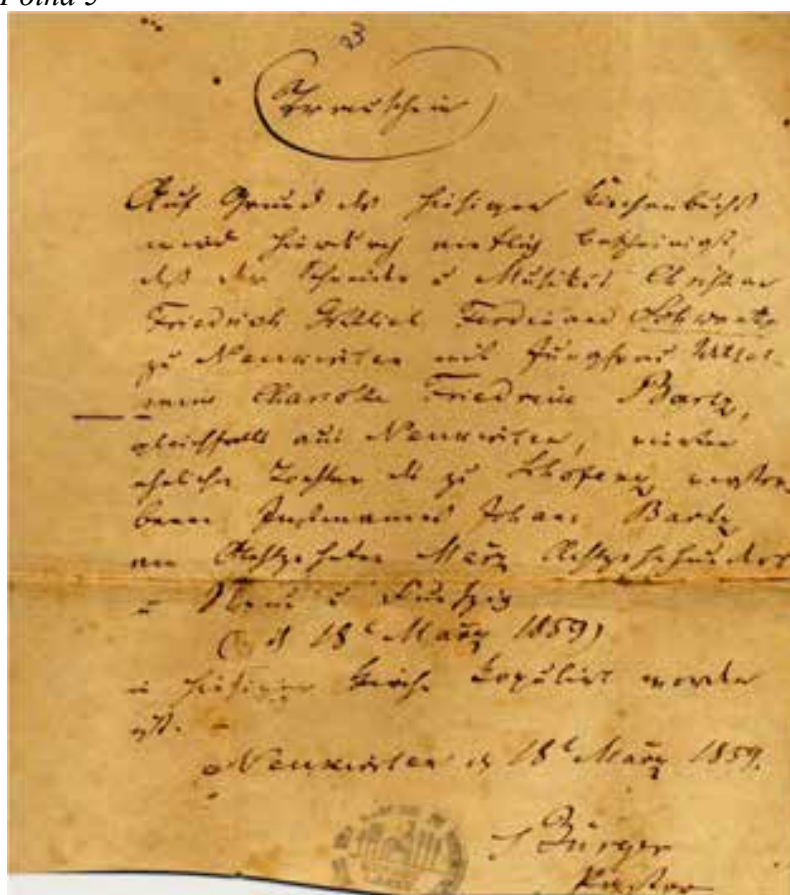 3
Trauschein
Auf Grund des hiesigen Kirchenbuchs
wird hierdurch amtlich bescheinigt,
daß der Schneider u Musikus Christian
Friedrich Gottlieb Ferdinand Schwantz
zu Neukirchen mit Jungfrau
Charotte Friedrein Bartz,
gleichfalls aus Neukirchen,
ehelichen Tochter des zu verstor-
benen Instmannes Johann Bartz
am Achtzehnten März Achtzehnhundert
u Neun u Funfzig
18t März 1859)
in hiesiger Kirche Kopulirt worden
ist.
Neukirchen 18t März 1859.
Bürger
Pastor